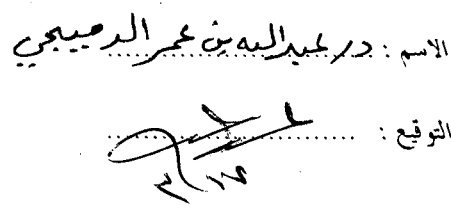 الاسم : د/ عبدالله بن عمر الدميجي
التوقيع :